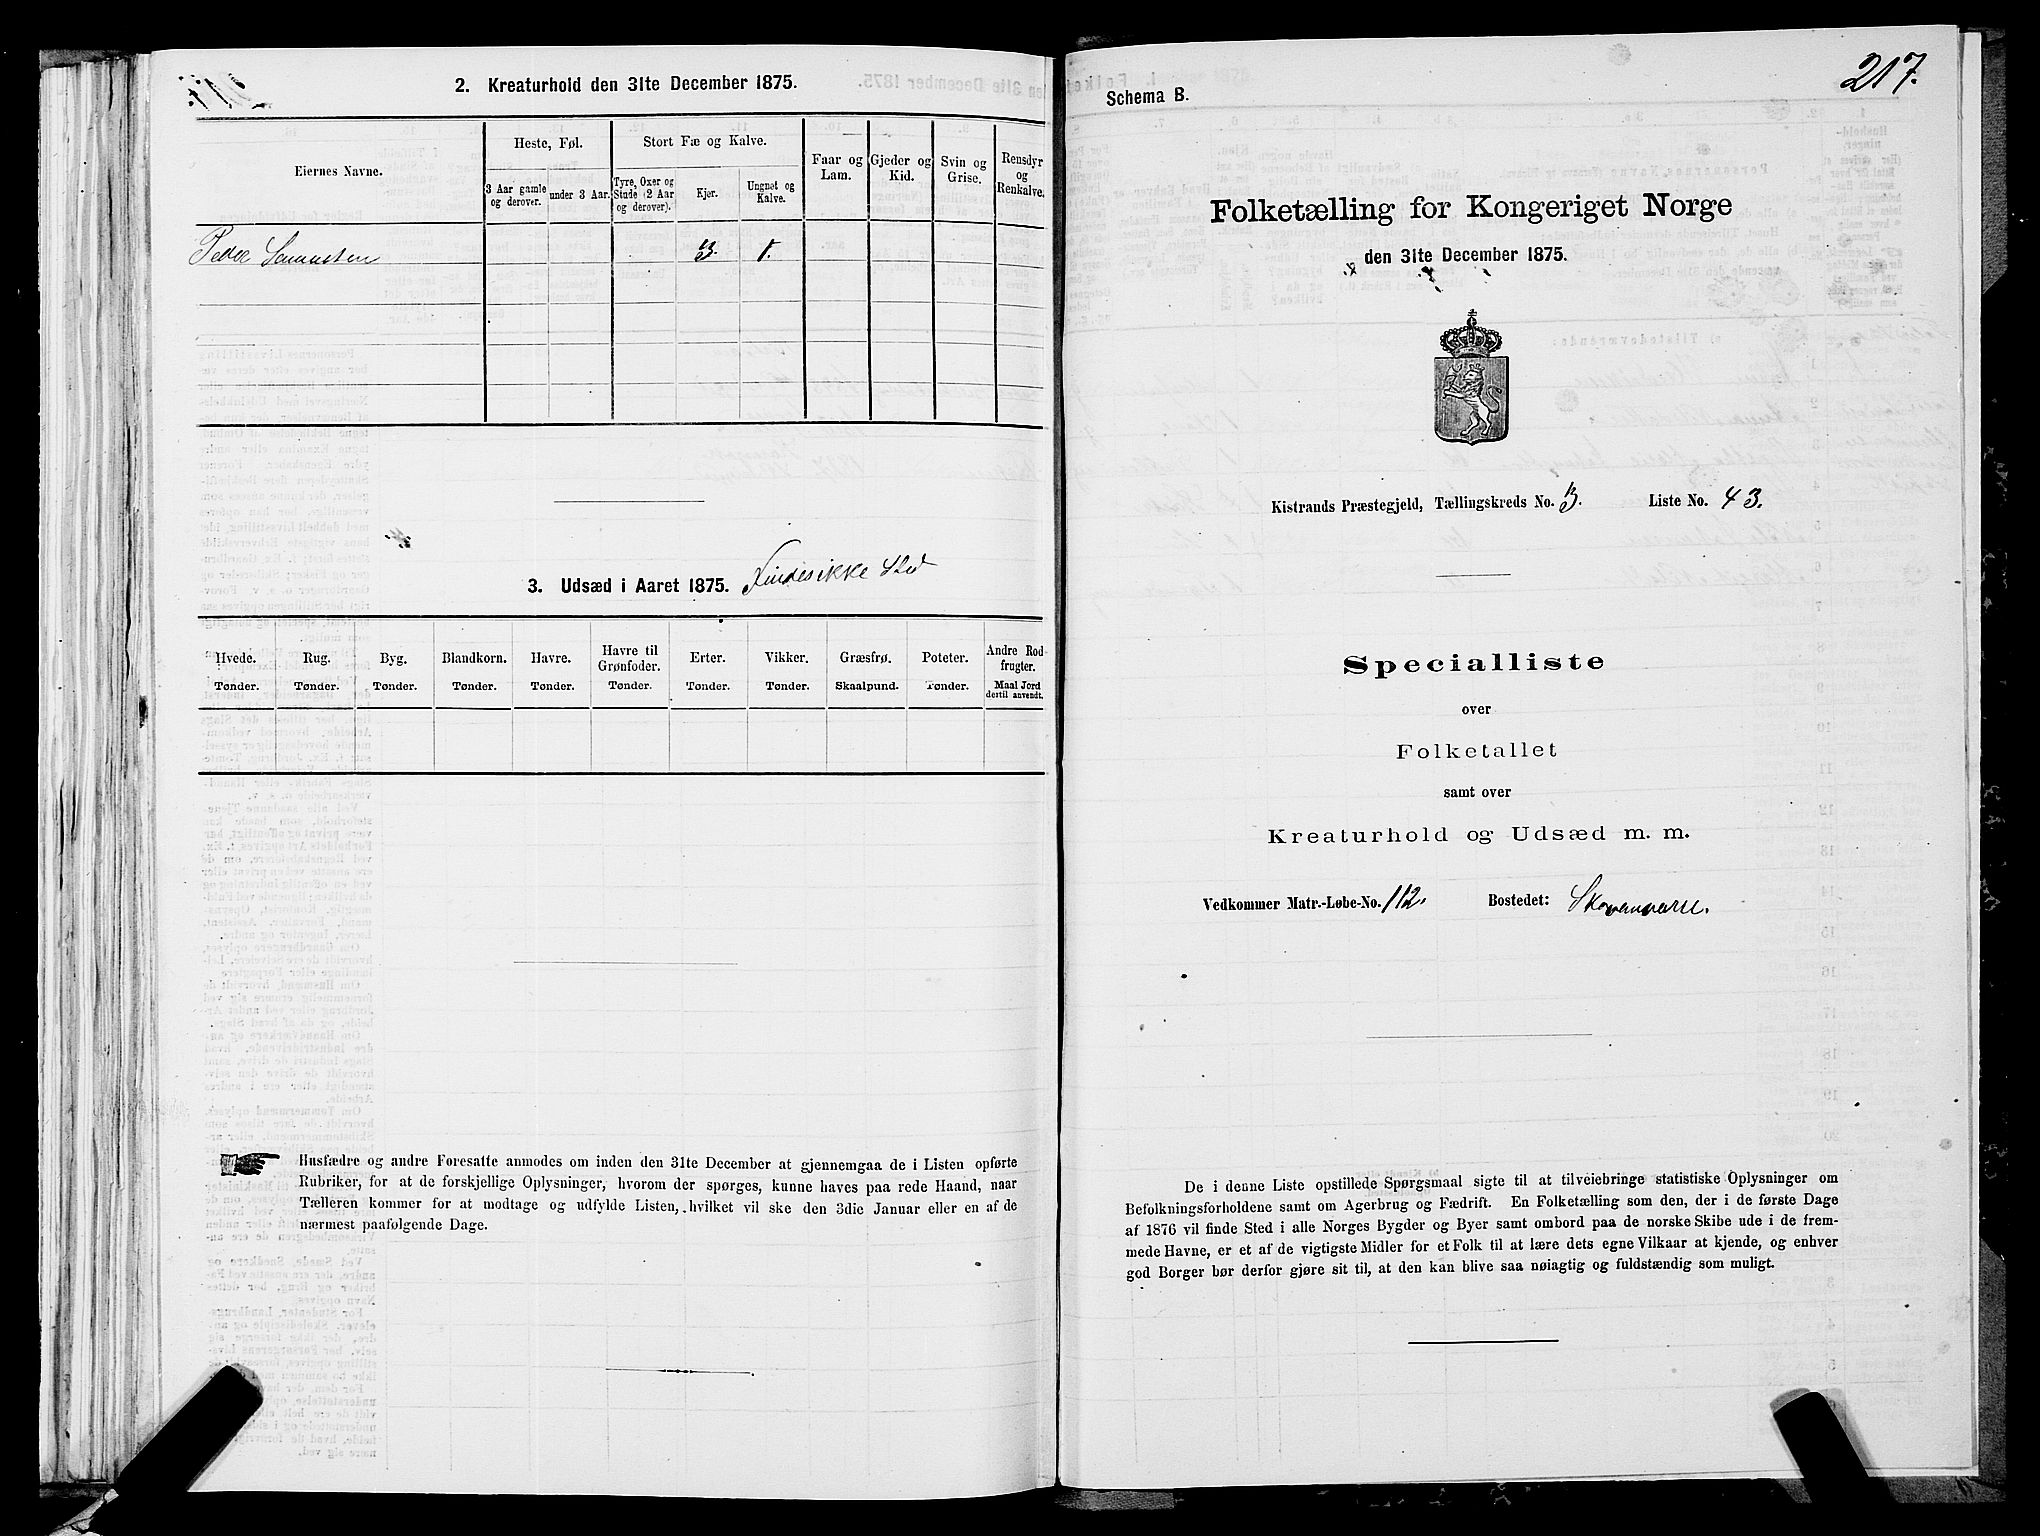 2. Kreaturhold den 31te December 1875.
Eiernes Navne.
Heste, Føl.
3 Aar gamle og derover.
under 3 Aar.
Stort Fæ og Kalve.
Tyre, Oxer og Stude (2 Aar og derover).
Kjør.
Ungnøt og Kalve.
Faar og Lam.
Gjeder og Kid.
Svin og Grise.
Rensdyr og Renkalve.
Peder 3. 1.
3. Udsæd i Aaret 1875. Findes ikke Sted
Hvede. Rug. Byg. Blandkorn. Havre. Havre til Grønfoder. Erter. Vikker. Græsfrø. Poteter. Andre Rodfrugter.
Tønder. Tønder. Tønder. Tønder. Tønder. Tønder. Tønder. Tønder. Skaalpund. Tønder. Maal Jord dertil anvendt.
Husfædre og andre Foresatte anmodes om inden den 31te December at gjennemgaa de i Listen opførte
Rubriker, for at de forskjellige Oplysninger, hvorom der spørges, kunne haves paa rede Haand, naar
Tælleren kommer for at modtage og udfylde Listen, hvilket vil ske den 3die Januar eller en af de
nærmest paafølgende Dage.
217.
Schema B.
Folketælling for Kongeriget Norge
den 31te December 1875.
Kistrands Præstegjeld, Tællingskreds No. 3. Liste No. 43.
Specialliste
over
Folketallet
samt over
Kreaturhold og Udsæd m. m.
Vedkommer Matr.-Løbe-No. 112. Bostedet:
De i denne Liste opstillede Spørgsmaal sigte til at tilveiebringe statistiske Oplysninger om
Befolkningsforholdene samt om Agerbrug og Fædrift. En Folketælling som den, der i de første Dage
af 1876 vil finde Sted i alle Norges Bygder og Byer samt ombord paa de norske Skibe ude i de frem-
mede Havne, er et af de vigtigste Midler for et Folk til at lære dets egne Vilkaar at kjende, og enhver
god Borger bør derfor gjøre sit til, at den kan blive saa nøiagtig og fuldstændig som muligt.